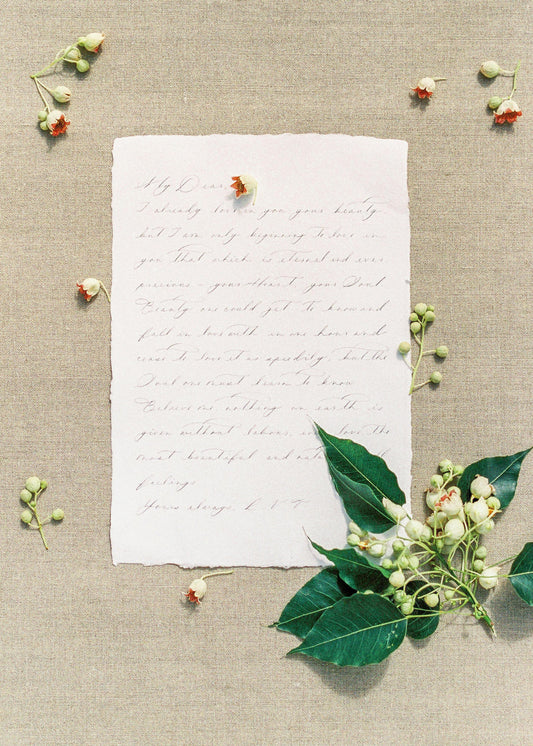 My Dear
I already love in you your beauty
but I am only beginning to love in
you that which is eternal and ever
precious - your Heart, your Soul
Beauty one could get to know and
fall in love with in one hour and
cease to love it as speedily; but the
Soul one must learn to know
Believe me, nothing on earth is
given without labour, even love the
most beautiful and
feelings
Yours always, L V T